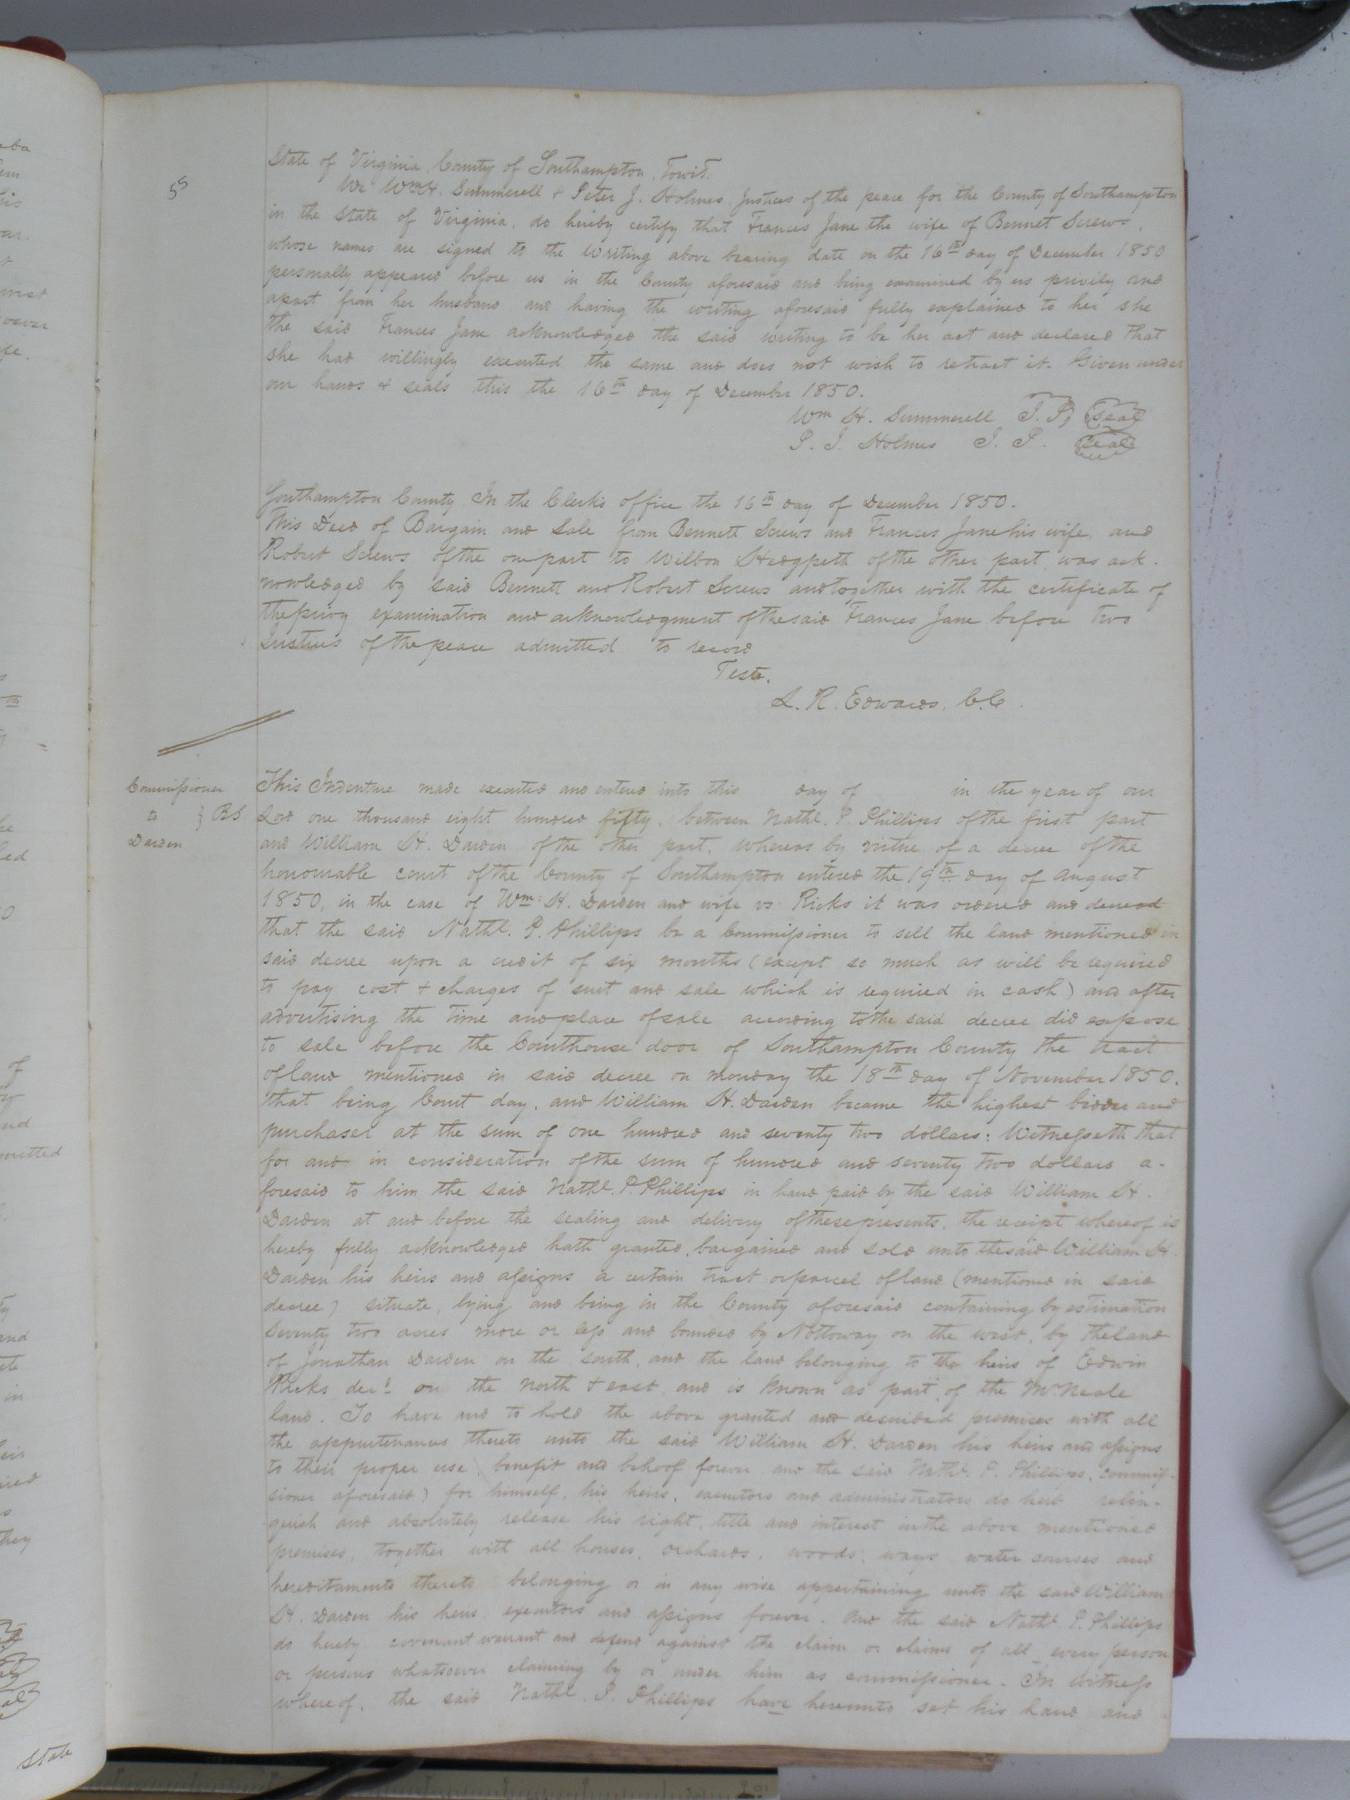 55
State of Virginia, County of Southampton, Towit.
We Wm H. Summerell & Peter J. Holmes, Justices of the peace for the County of Southampton
in the State of Virginia, do hereby certify that Frances Jane the wife of Bennet Screws,
whose names are signed to the writing above bearing date on the 16th day of December 1850
personally appeared before us in the County aforesaid and being examined by us privily and
apart from her husband and having the writing aforesaid fully explained to her she
the said Frances Jane acknowledged the said writing to be her act and declared that
she had willingly executed the same and does not wish to retract it. Given under
our hands & seals this the 16th day of December 1850.
Wm H. Summerell J. P. Seal
P. J. Holmes J. P. Seal
Southampton County In the Clerk's office the 16th day of December 1850.
This Deed of Bargain and Sale from Bennett Screws and Frances Jane his wife, and
Robert Screws of the one part to Wilbon Hedgpeth of the other part, was ack-
nowledged by said Bennett and Robert Screws and together with the certificate of
the privy examination and acknowledgment of the said Frances Jane before two
Justices of the peace admitted to record
Teste.
L. R. Edwards, C.C.
Commissioner
to } BS
Darden
This Indenture made executed and entered into this day of in the year of our
Lord one thousand eight hundred fifty, between Nathl. P. Phillips of the first part
and William H. Darden of the other part, whereas by virtue of a decree of the
honourable court of the County of Southampton entered the 19th day of August
1850, in the case of Wm. H. Darden and wife vs Ricks it was ordered and decreed
that the said Nathl. P. Phillips be a Commissioner to sell the land mentioned in
said decree upon a credit of six months (except so much as will be required
to pay cost & charges of suit and sale which is required in cash) and after
advertising the time and place of sale according to the said decree did expose
to sale before the Courthouse door of Southampton County the tract
of land mentioned in said decree on monday the 18th day of November 1850.
that being Court day, and William H. Darden became the highest bidder and
purchaser at the sum of one hundred and seventy two dollars: Witnesseth that
for and in consideration of the sum of hundred and seventy two dollars a-
foresaid to him the said Nathl. P. Phillips in hand paid by the said William H.
Darden at and before the sealing and delivery of these presents, the receipt whereof is
hereby fully acknowledged hath granted, bargained and sold unto the said William H.
Darden his heirs and assigns a certain tract or parcel of land (mentioned in said
decree) situate, lying and being in the County aforesaid containing by estimation
seventy two acres more or less and bounded by Nottoway on the west, by the land
of Jonathan Darden on the south, and the land belonging to the heirs of Edwin
Ricks decd. on the north & east, and is known as part of the McNeale
land. To have and to hold the above granted and described premises with all
the appurtenances thereto unto the said William H. Darden his heirs and assigns
to their proper use, benefit and behoof forever, and the said Nathl. P. Phillips, commis-
sioner aforesaid) for himself, his heirs, executors and administrators do here relin-
quish and absolutely release his right, title and interest in the above mentioned
premises, together with all houses, orchards, woods, ways, water courses and
hereditaments thereto belonging or in any wise appertaining unto the said William
H. Darden his heirs, executors and assigns forever. And the said Nathl. P. Phillips
do hereby covenant warrant and defend against the claim or claims of all every person
or persons whatsoever claiming by or under him as commissioner. In witness
whereof, the said Nathl. P. Phillips have hereunto set his hand and
State